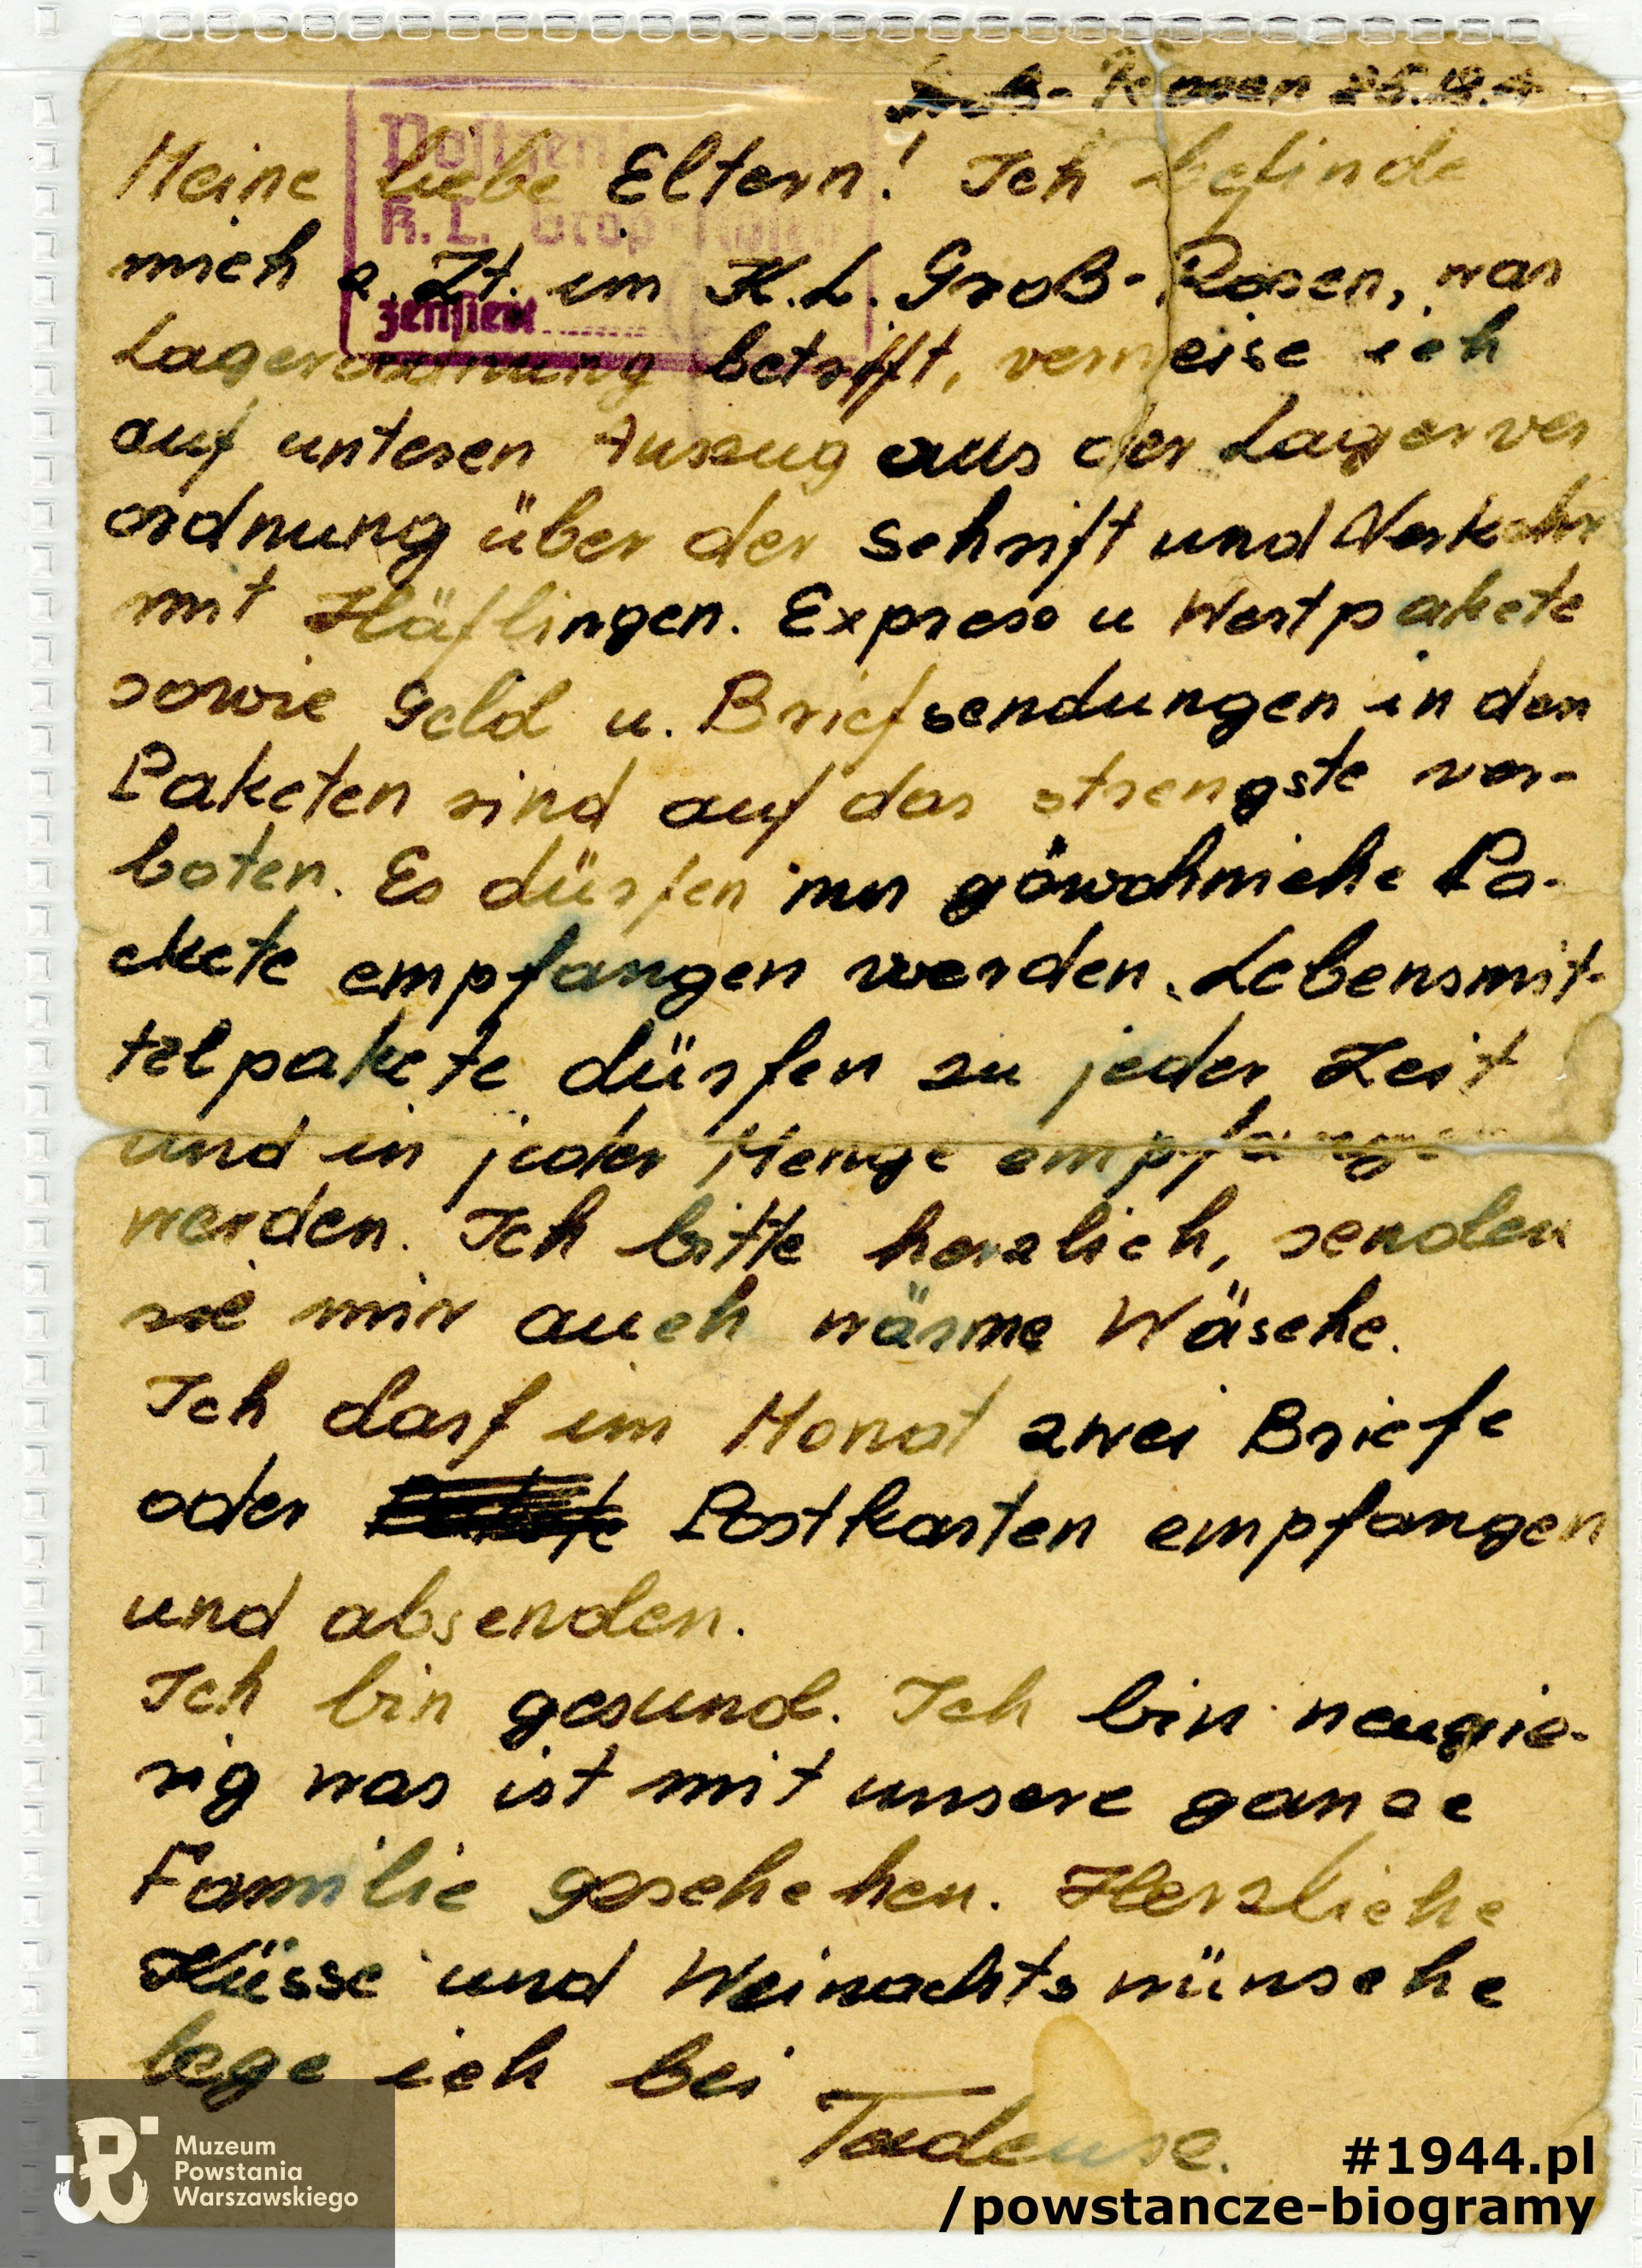 Groß-Rosen 26.12.4
Meine liebe Eltern! Ich befinde
mich z. Zt. im K.L. Groß-Rosen, was
Lagerordnung betrifft, verweise ich
auf unteren Auszug aus der Lagerver
ordnung über der Schrift und Verkehr
mit Häflingen. Express u Wertpakete
sowie Geld u. Briefsendungen in den
Paketen sind auf das strengste ver-
boten. Es dürfen nur göwohniche Pa-
ckete empfangen werden. Lebensmit-
telpakete dürfen zu jeder Zeit
und in jeder Menge empfange
werden. Ich bitte herzlich, senden
sie mir auch wärme Wäsche.
Ich darf im Monat zwei Briefe
oder Postkarten empfangen
und absenden.
Ich bin gesund. Ich bin neugie-
rig was ist mit unsere ganze
Familie geschehen. Herzliche
Küsse und Weinachtswünsche
lege ich bei
Tadeusz.
Postzen
K. L. Groß-Rosen
zensiert
Muzeum
Powstania
Warszawskiego
#1944.pl
/powstancze-biogramy